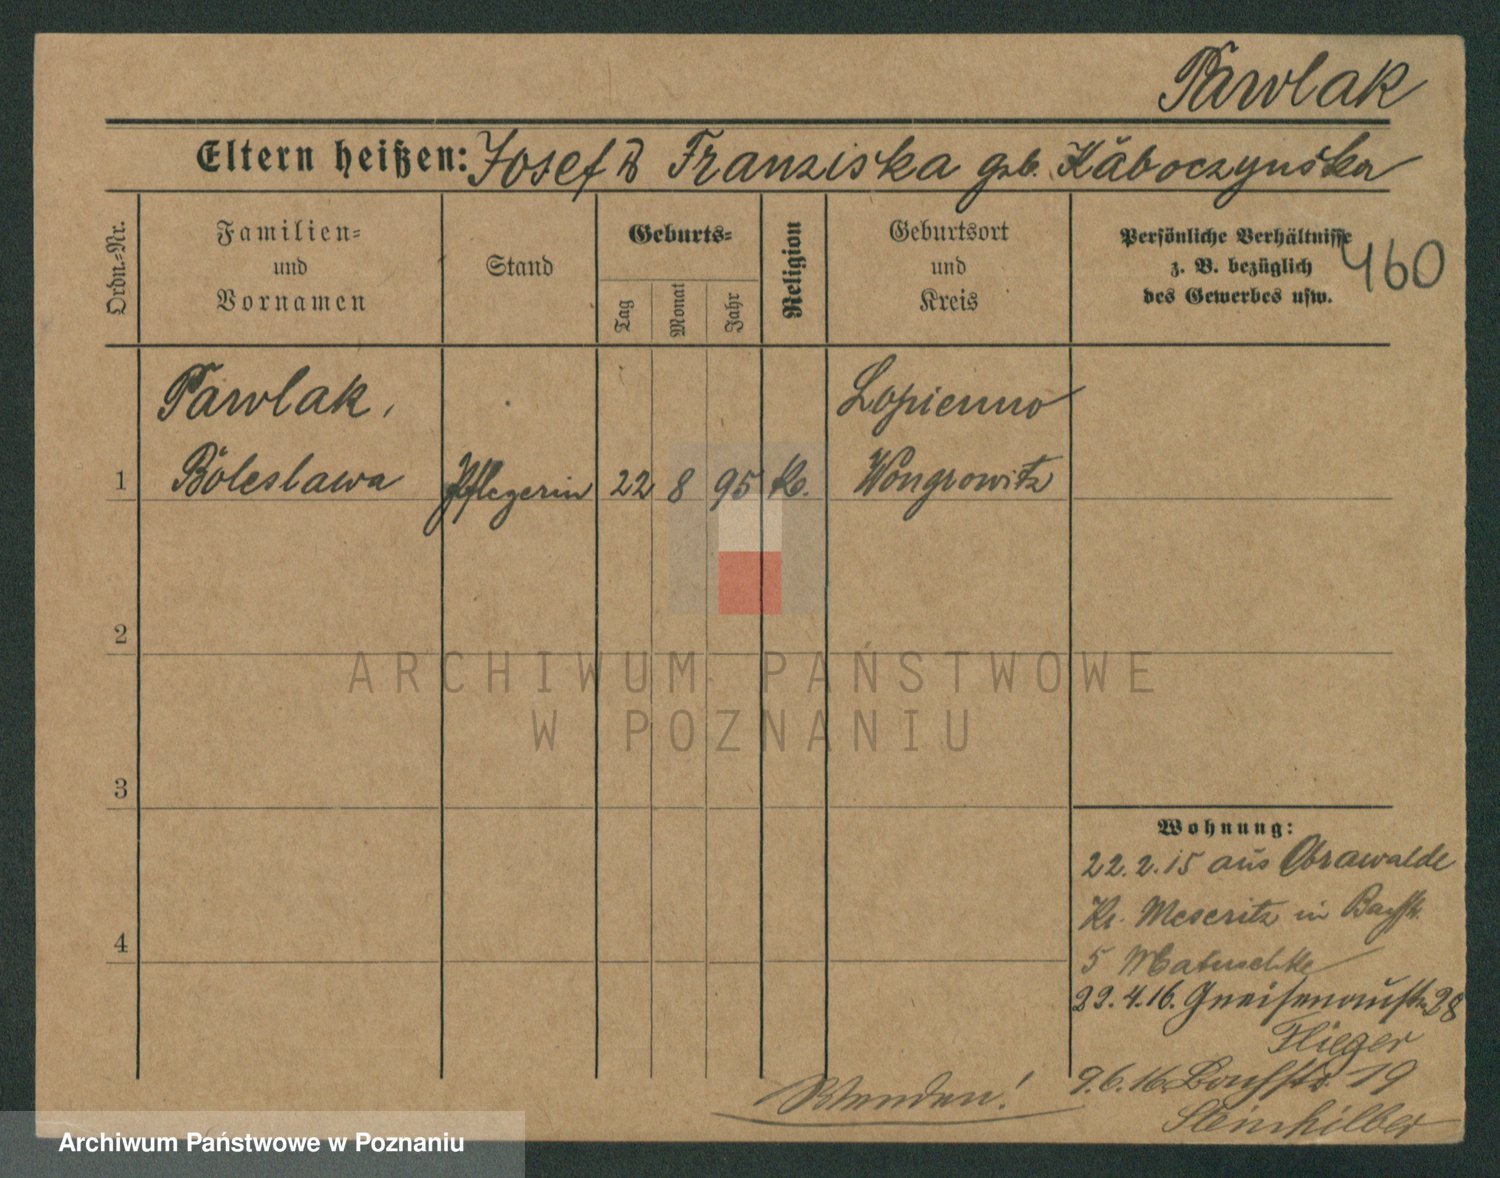 Pawlak
Eltern heißen: Josef & Franziska geb. Kaboczynska
Ordn.-Nr.
Familien-
und
Vornamen
Stand
Geburts-
Tag
Monat
Jahr
Religion
Geburtsort
und
Kreis
Persönliche Verhältnisse
z. B. bezüglich
des Gewerbes usw.
460
Pawlak,
Lopienno
1 Boleslawa Pflegerin 22 8 95 K. Wongrowitz
2
3
4
ARCHIWUM PAŃSTWOWE
W POZNANIU
Wohnung:
22.2.15 aus Obrawalde
Kr. Meseritz in
5 Matuschke
22.4.16. Gneisenaustr. 28
Flieger
9.6.16. 19
Steinhilber
Wenden!
Archiwum Państwowe w Poznaniu